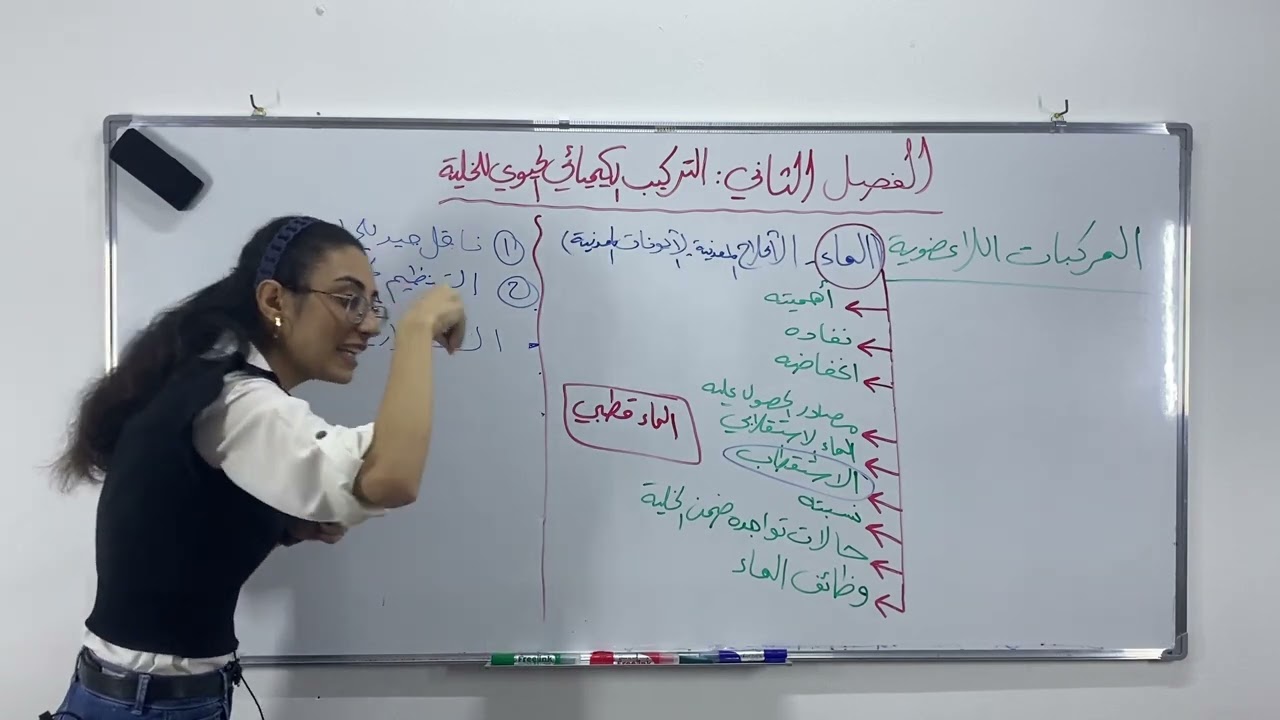 الفصل الثاني: التركيب الكيميائي الحيوي للخلية
المركبات اللاعضوية
الماء - الأملاح المعدنية (الأيونات المعدنية)
أهميته
نفاده
انخفاضه
مصادر الحصول عليه
الماء الاستقلابي
الاستقطاب
نسبته
حالات تواجده ضمن الخلية
وظائف الماء
الماء قطبي
① ناقل جيد
②
Freelink
Freelink